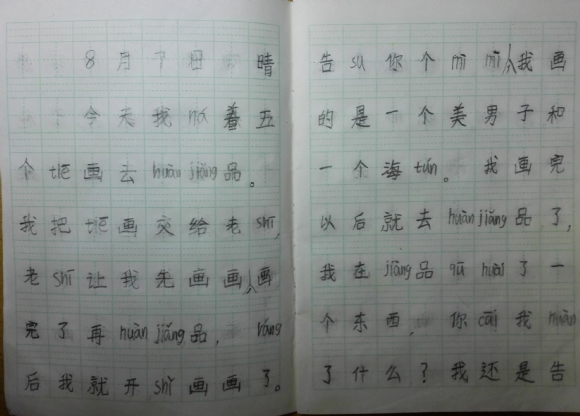 8月7日 晴
今天我ná着五
个tiē画去huàn jiǎng品。
我把tiē画交给老shī，
老shī让我先画画，画
完了再huàn jiǎng品，ráng
后我就开shǐ画画了。
告su你个mì mì，我画
的是一个美男子和
一个海tún。我画完
以后就去huàn jiǎng品了，
我在jiǎng品qū huàn了一
个东西，你cāi我huàn
了什么？我还是告